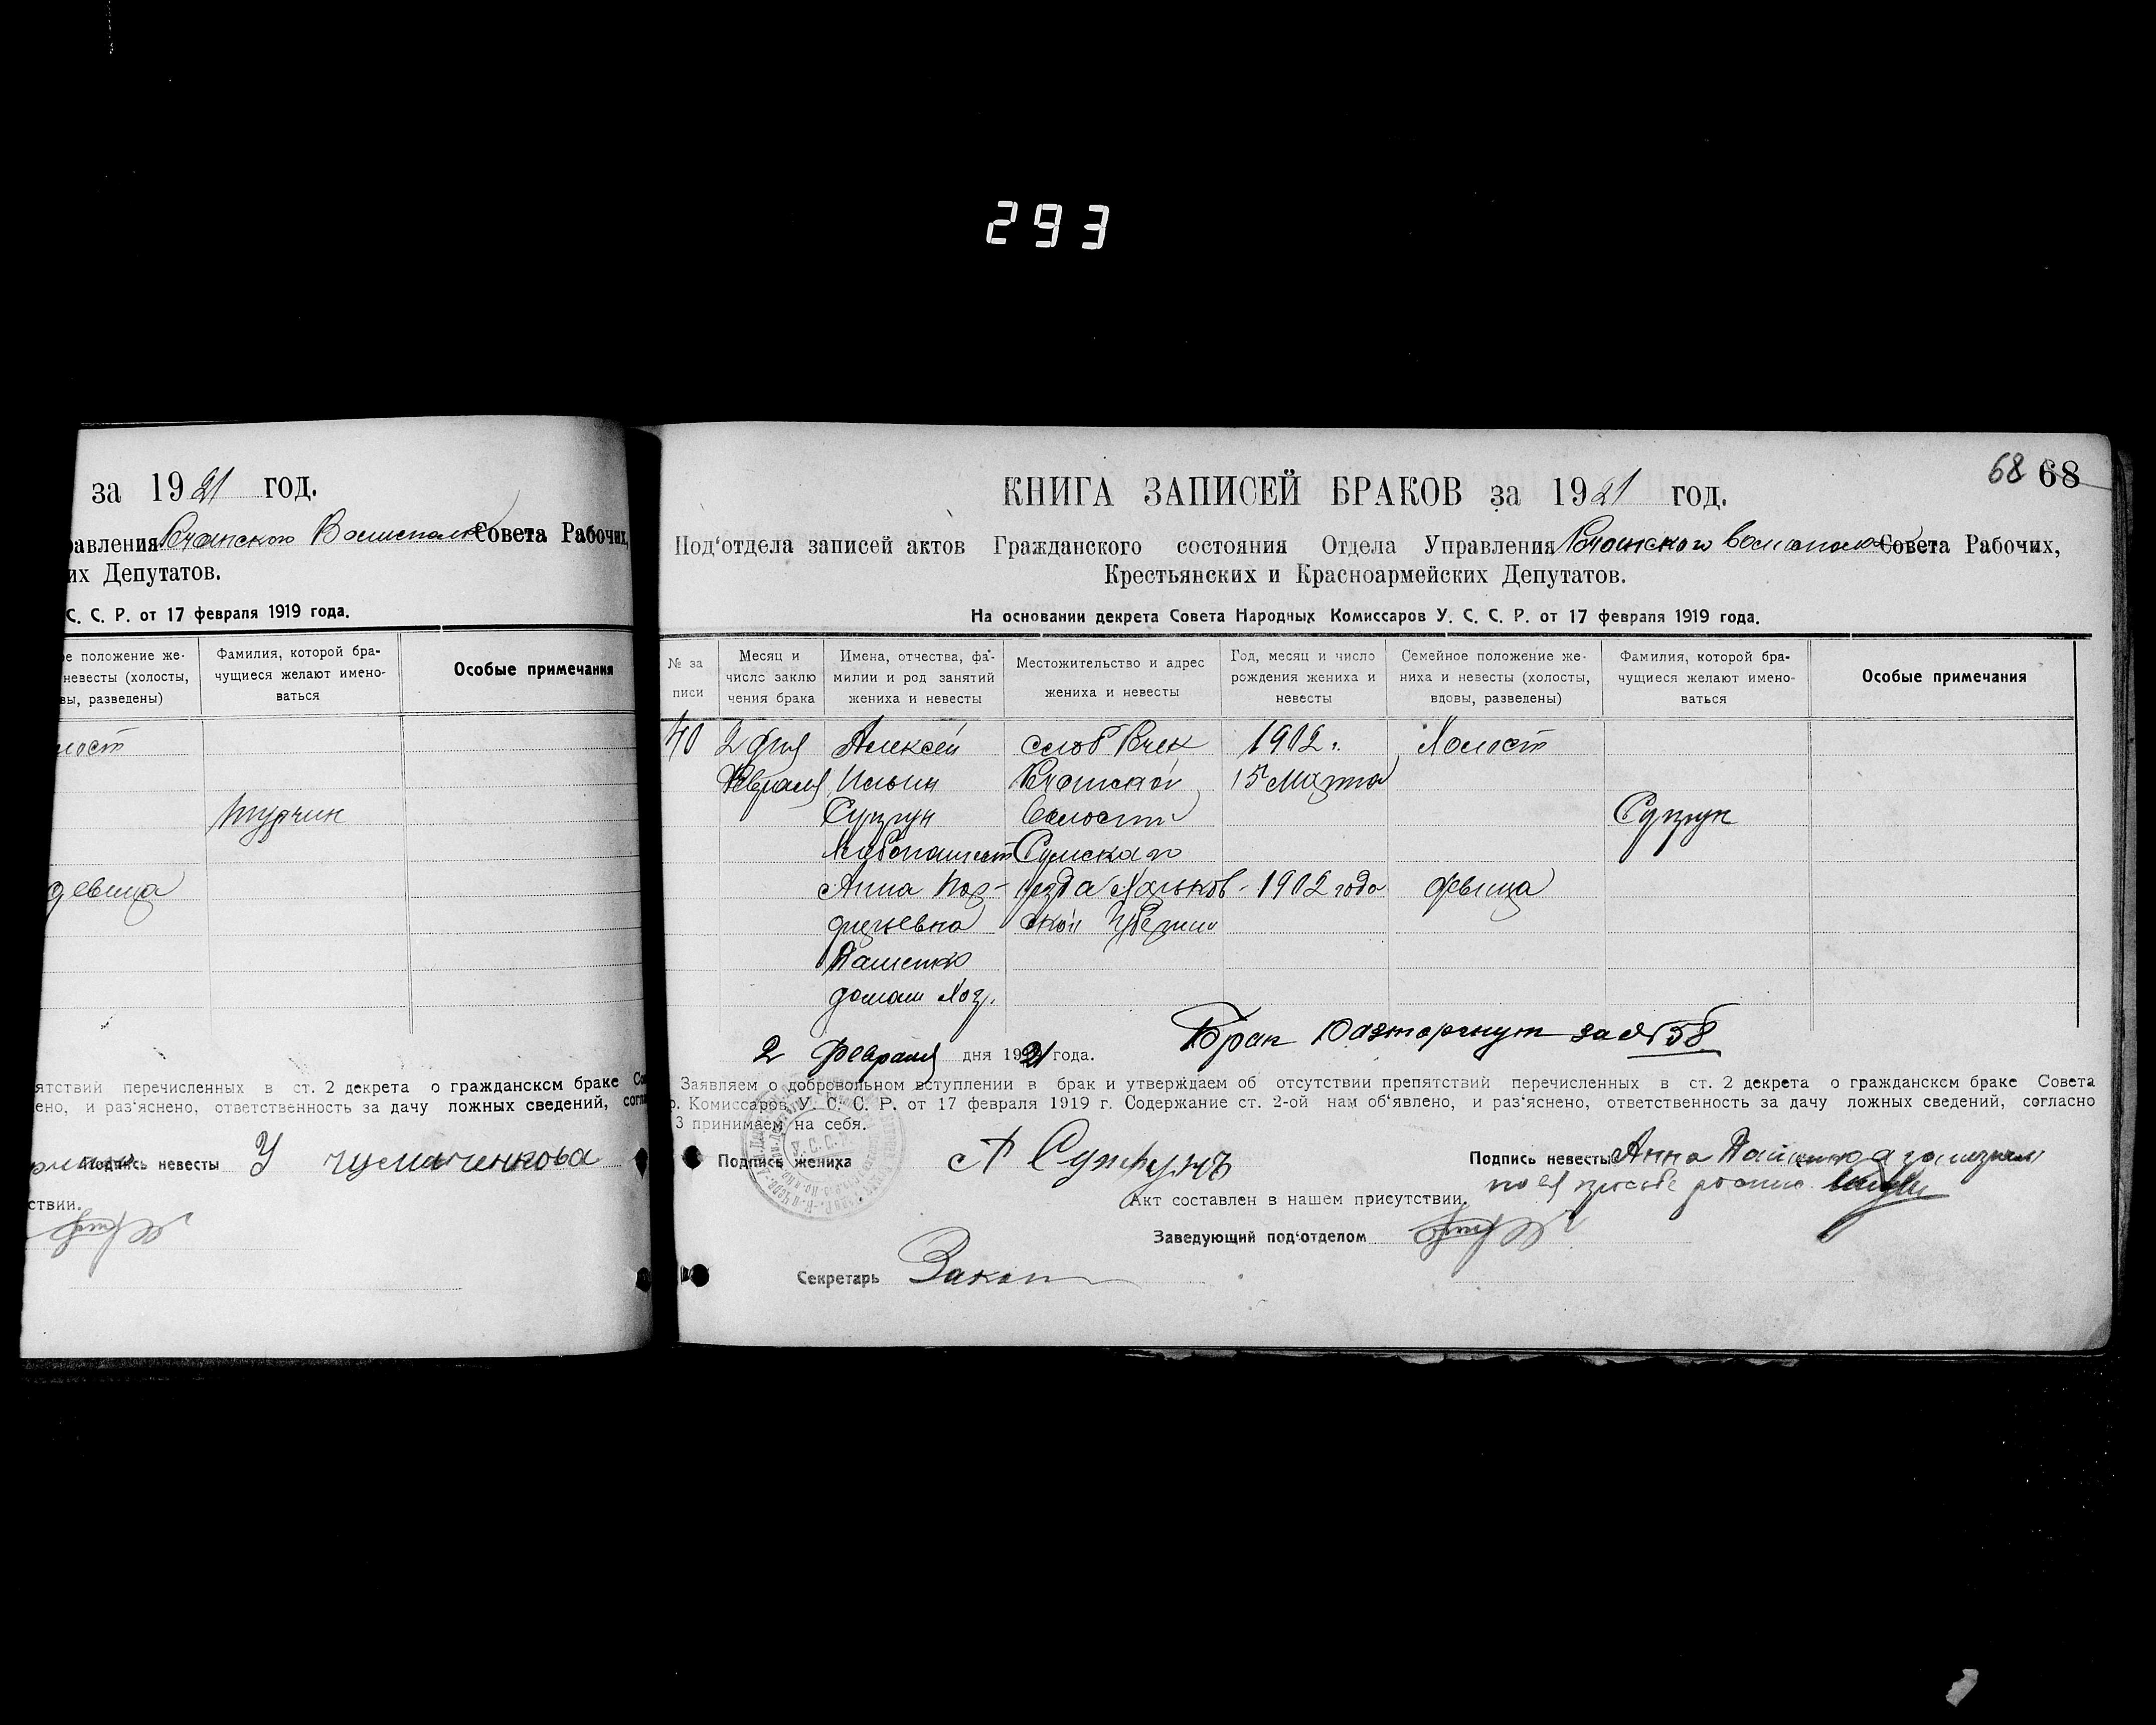 293
за 1921 год.
равления Совета Рабочих,
их Депутатов.
С. С. Р. от 17 февраля 1919 года.
ое положение же-
невесты (холосты,
вы, разведены)
Фамилия, которой бра-
чущиеся желают имено-
ваться
Особые примечания
лост
Турчин
девица
ятствий перечисленных в ст. 2 декрета о гражданском браке
ено, и раз‘яснено, ответственность за дачу ложных сведений,
Подпись невесты У Чумаченкова
ствии.
68 68
КНИГА ЗАПИСЕЙ БРАКОВ за 1921 год.
Под‘отдела записей актов Гражданского состояния Отдела Управления Совета Рабочих,
Крестьянских и Красноармейских Депутатов.
На основании декрета Совета Народных Комиссаров У. С. С. Р. от 17 февраля 1919 года.
№ за
писи
Месяц и
число заклю
чения брака
Имена, отчества, фа-
милии и род занятий
жениха и невесты
Местожительство и адрес
жениха и невесты
Год, месяц и число
рождения жениха и
невесты
Семейное положение же-
ниха и невесты (холосты,
вдовы, разведены)
Фамилия, которой бра-
чущиеся желают имено-
ваться
Особые примечания
40 2 дня Алексей слоб 1902 г. Холост
Февраля Ильин 15 Марта
Супрун Волости Супрун
Хлебопашест Сумскаго
Анна уезда Харьков- 1902 года девица
ской Губернии
Пащенко
домаш хоз.
Брак Разторгнут за № 58
2 Февраля дня 1921 года.
Заявляем о добровольном вступлении в брак и утверждаем об отсутствии препятствий перечисленных в ст. 2 декрета о гражданском браке Совета
р. Комиссаров У. С. С. Р. от 17 февраля 1919 г. Содержание ст. 2-ой нам об‘явлено, и раз‘яснено, ответственность за дачу ложных сведений, согласно
3 принимаем на себя.
Подпись жениха А Супрунъ
Подпись невесты Анна Пащенко
по ея просьбе
Акт составлен в нашем присутствии.
Заведующий под‘отделом
Секретарь